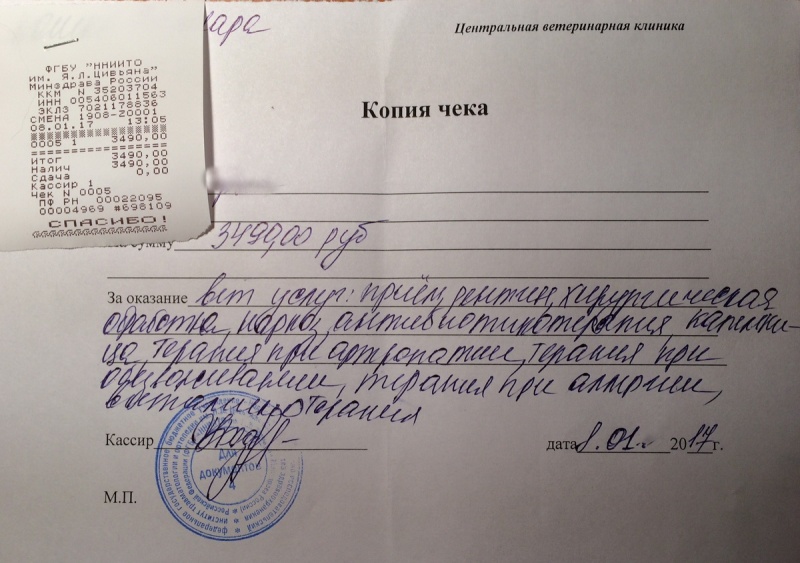 Центральная ветеринарная клиника
ФГБУ "ННИИТО
им. Я.Л.Цивьяна"
Минздрава России
ККМ N 35203704
ИНН 005406011563
ЭКЛЗ 7021178836
СМЕНА 1908-Z0001
08.01.17 13:05
0005 1 3490,00
ИТОГ 3490,00
Налич 3490,00
Сдача 0,00
Кассир 1
Чек N 0005
ПФ РН 00022095
00004969 #698109
СПАСИБО!
Копия чека
сумму 3490,00 руб
За оказание вет услуг: приём, рентген, хирургическая
обработка, наркоз, антибиотикотерапия, капельни-
ца, терапия при артропатии, терапия при
обезвоживании, терапия при аллергии,
витаминотерапия
Кассир
дата 8.01. 2017 г.
М.П.
ДЛЯ
ДОКУМЕНТОВ
4